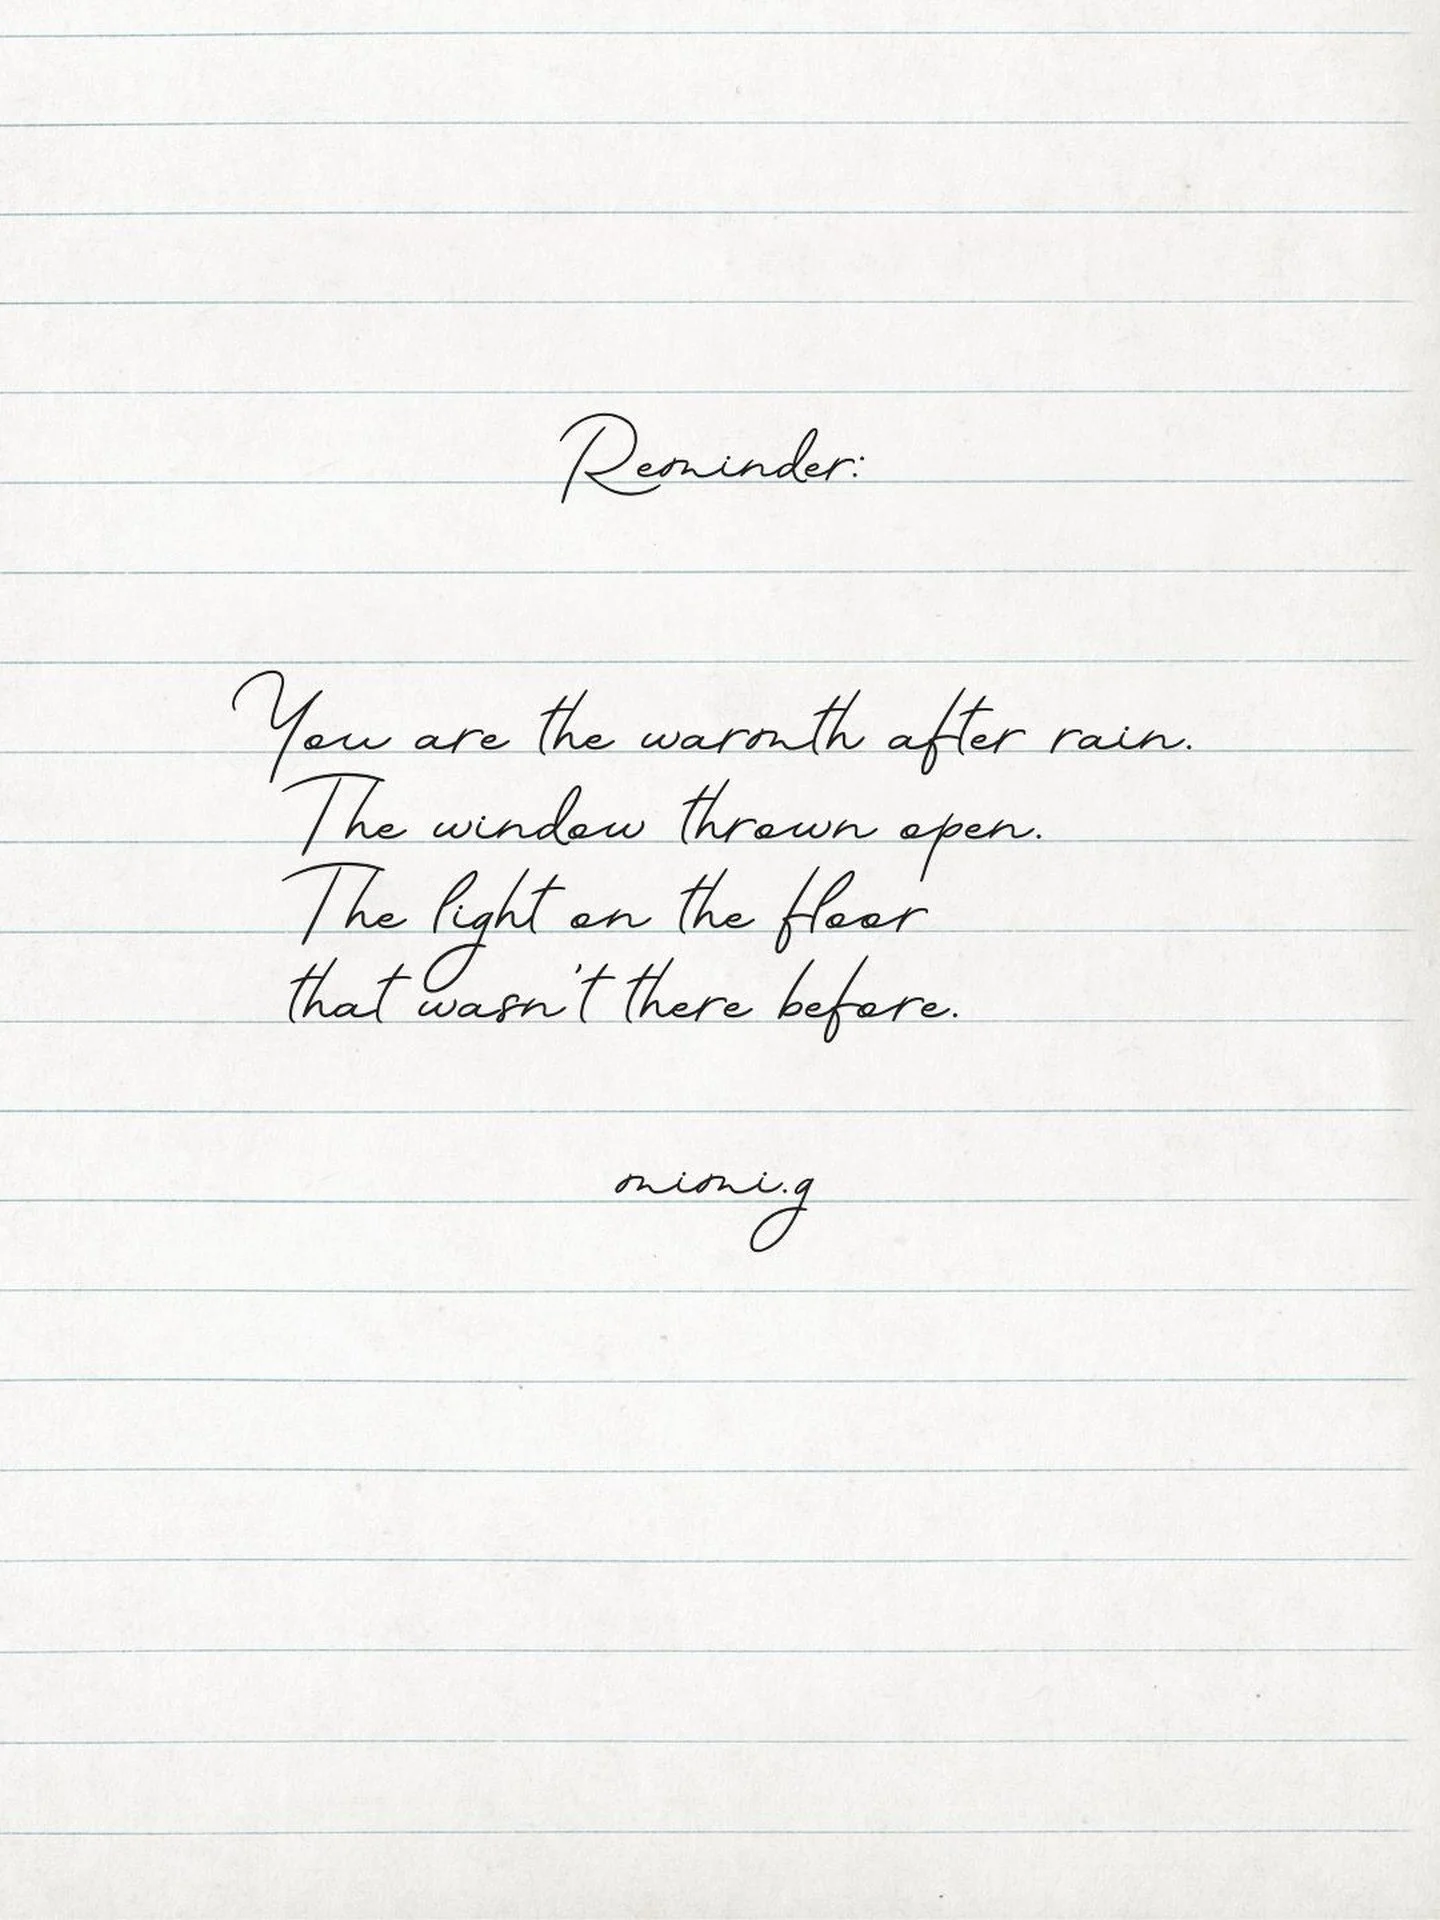 Reminder:
You are the warmth after rain.
The window thrown open.
The light on the floor
that wasn't there before.
mimi.g